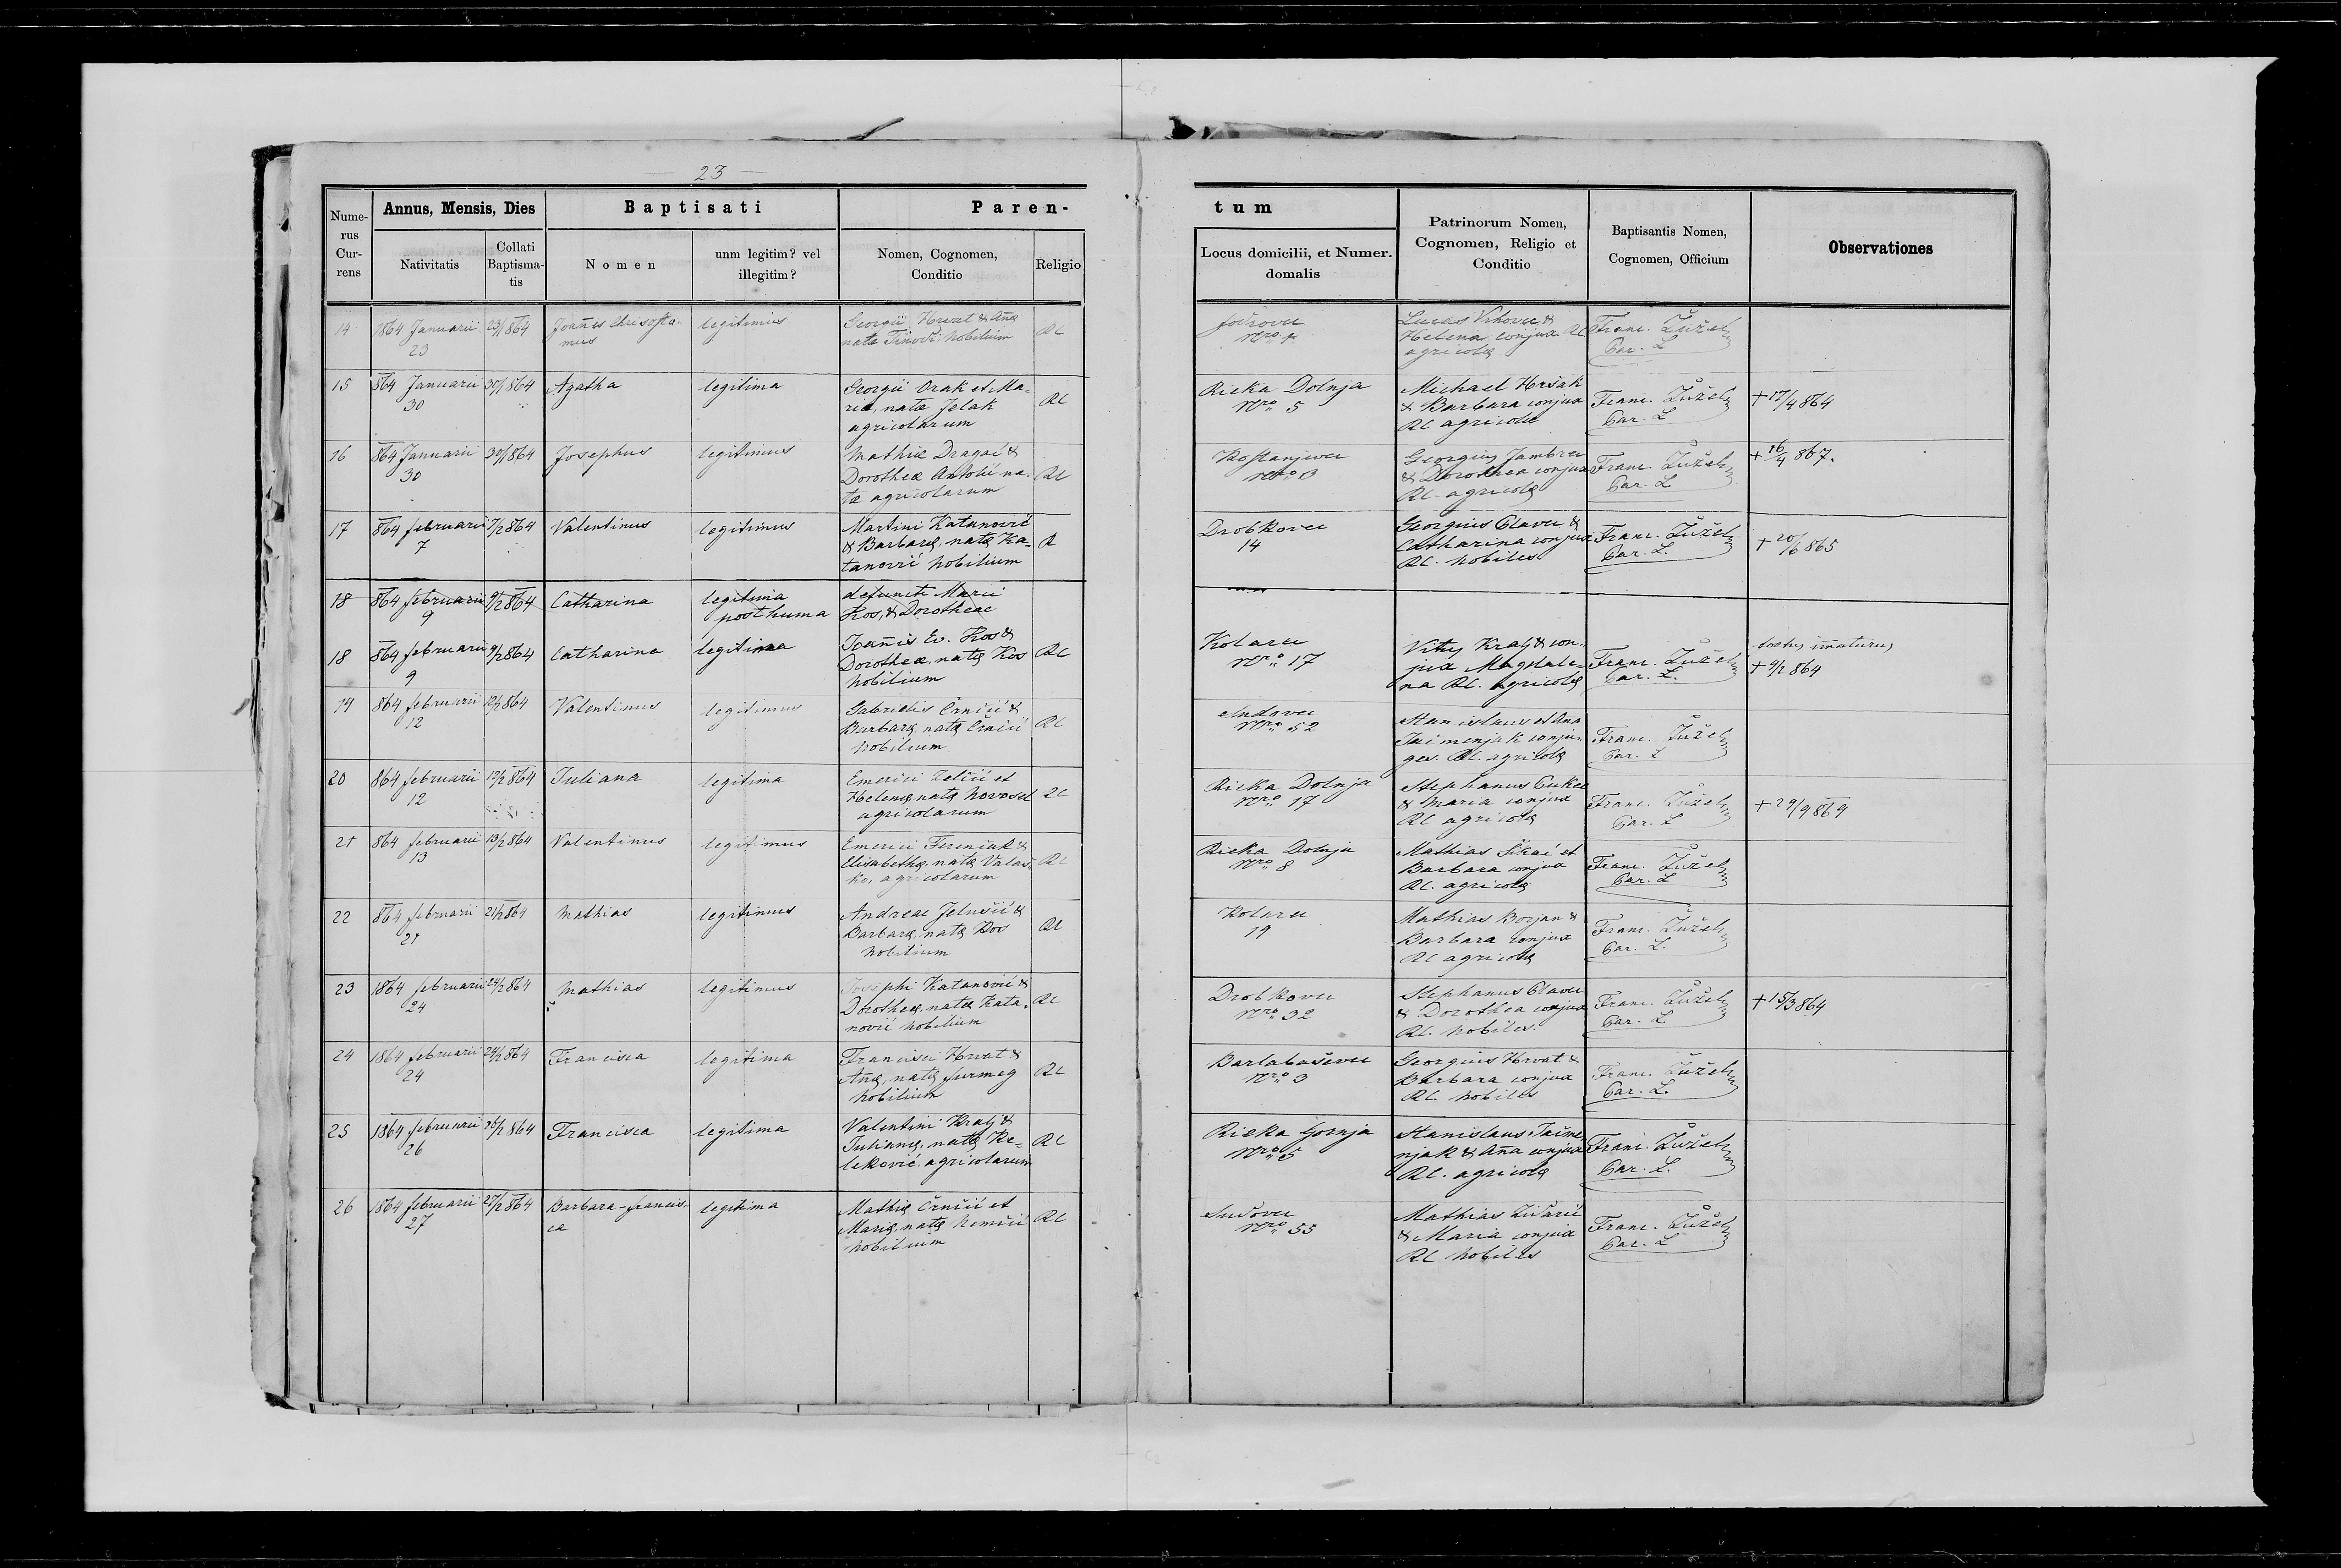 23
Nume-
rus
Cur-
rens
Annus, Mensis, Dies
Nativitatis
Collati
Baptisma-
tis
Baptisati
Nomen
unm legitim? vel
illegitim?
Paren-
Nomen, Cognomen,
Conditio
Religio
tum
Locus domicilii, et Numer.
domalis
Patrinorum Nomen,
Cognomen, Religio et
Conditio
Baptisantis Nomen,
Cognomen, Officium
Observationes
14
1864 Januarii
23
23/1 864
Joañes Chrisosto-
mus
legitimus
Georgii Hrvat & Añæ
natæ nobilium
RC
Nro
Lucas Vrhovec &
Helena conjux RC
agricolæ
Franc. Žužel
Par. L
15
864 Januarii
30
30/1 864
Agatha
legitima
Georgii Orak et Ma-
riæ, natæ Jelak
agricolarum
RC
Rieka Dolnja
Nro 5
Michael Hršak
& Barbara conjux
RC agricolæ
Franc. Žužel
Par. L
+ 17/4 864
16
864 Januarii
30
30/1 864
Josephus
legitimus
Mathiæ Dragač &
Dorotheæ na-
tæ agricolarum
RC
Kostanjevec
Nro 3
Georgius Jambrec
& Dorothea conjux
RC. agricolæ
Franc. Žužel
Par. L
+ 16/4 867.
17
864 februarii
7
7/2 864
Valentinus
legitimus
Martini Katanović
& Barbaræ, natæ Ka-
tanović nobilium
R
Drobkovec
14
Georgius Glavec &
Catharina conjux
RC. nobiles
Franc. Žužel
Par. L.
+ 20/6 865
18
864 februarii
9
9/2 864
Catharina
legitima
posthuma
defuncti Marci
Kos, & Dorotheae
18
864 februarii
9
9/2 864
Catharina
legitima
Joañis Ev. Kos &
Dorotheæ, natæ Kos
nobilium
RC
Kolarec
Nro 17
Vitus Kralj & con-
jux Magdale-
na RC. agricolæ
Franc. Žužel
Par. L.
foetus imaturus
+ 9/2 864
19
864 februarii
12
12/2 864
Valentinus
legitimus
Gabrielis Črnčić &
Barbaræ, natæ Črnčić
nobilium
RC
Sudovec
Nro 52
Stanislaus et Ana
Jačmenjak conju-
ges. RC. agricolæ
Franc. Žužel
Par. L
20
864 februarii
12
12/2 864
Juliana
legitima
Emerici Zelčić et
Helenæ, natæ Novosel
agricolarum
RC
Rieka Dolnja
Nro 17
Stephanus Cukec
& Maria conjux
RC agricolæ
Franc. Žužel
Par. L
+ 29/9 869
21
864 februarii
13
13/2 864
Valentinus
legitimus
Emerici Ferenčak &
Elisabethæ, natæ Valaš-
ko, agricolarum
RC
Rieka Dolnja
Nro 8
Mathias Sikač et
Barbara conjux
RC. agricolæ
Franc. Žužel
Par. L
22
864 februarii
21
21/2 864
Mathias
legitimus
Andreae Jelušić &
Barbaræ, natæ Kos
nobilium
RC
Kolarec
19
Mathias Borjan &
Barbara conjux
RC agricolæ
Franc. Žužel
Par. L.
23
1864 februarii
24
24/2 864
Mathias
legitimus
Josephi Katanović &
Dorotheæ, natæ Kata-
nović nobilium
RC
Drobkovec
Nro 32
Stephanus Glavec
& Dorothea conjux
RC. nobiles.
Franc. Žužel
Par. L
+ 15/3 864
24
1864 februarii
24
24/2 864
Francisca
legitima
Francisci Hrvat &
Añæ, natæ Jurmeg
nobilium
RC
Barlabaševec
Nro 3
Georgius Hrvat &
Barbara conjux
RC. nobiles
Franc. Žužel
Par. L.
25
1864 februarii
26
26/2 864
Francisca
legitima
Valentini Kralj &
Julianæ, natæ Ke-
leković agricolarum
RC
Rieka Gornja
Nro 5
Stanislaus Jačme-
njak & Aña conjux
RC. agricolæ
Franc. Žužel
Par. L.
26
1864 februarii
27
27/2 864
Barbara-francis-
ca
legitima
Mathiæ Črnčić et
Mariæ, natæ Nemčić
nobilium
RC
Sudovec
Nro 55
Mathias Židarić
& Maria conjux
RC nobiles
Franc. Žužel
Par. L